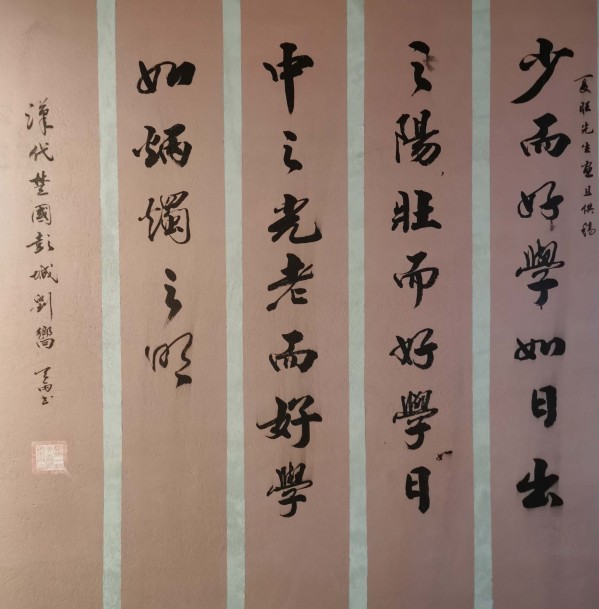 先生且供稿
少而好學如日出
之陽壯而好學如日
中之光老而好學
如炳燭之明
漢代楚國彭城劉嚮
书